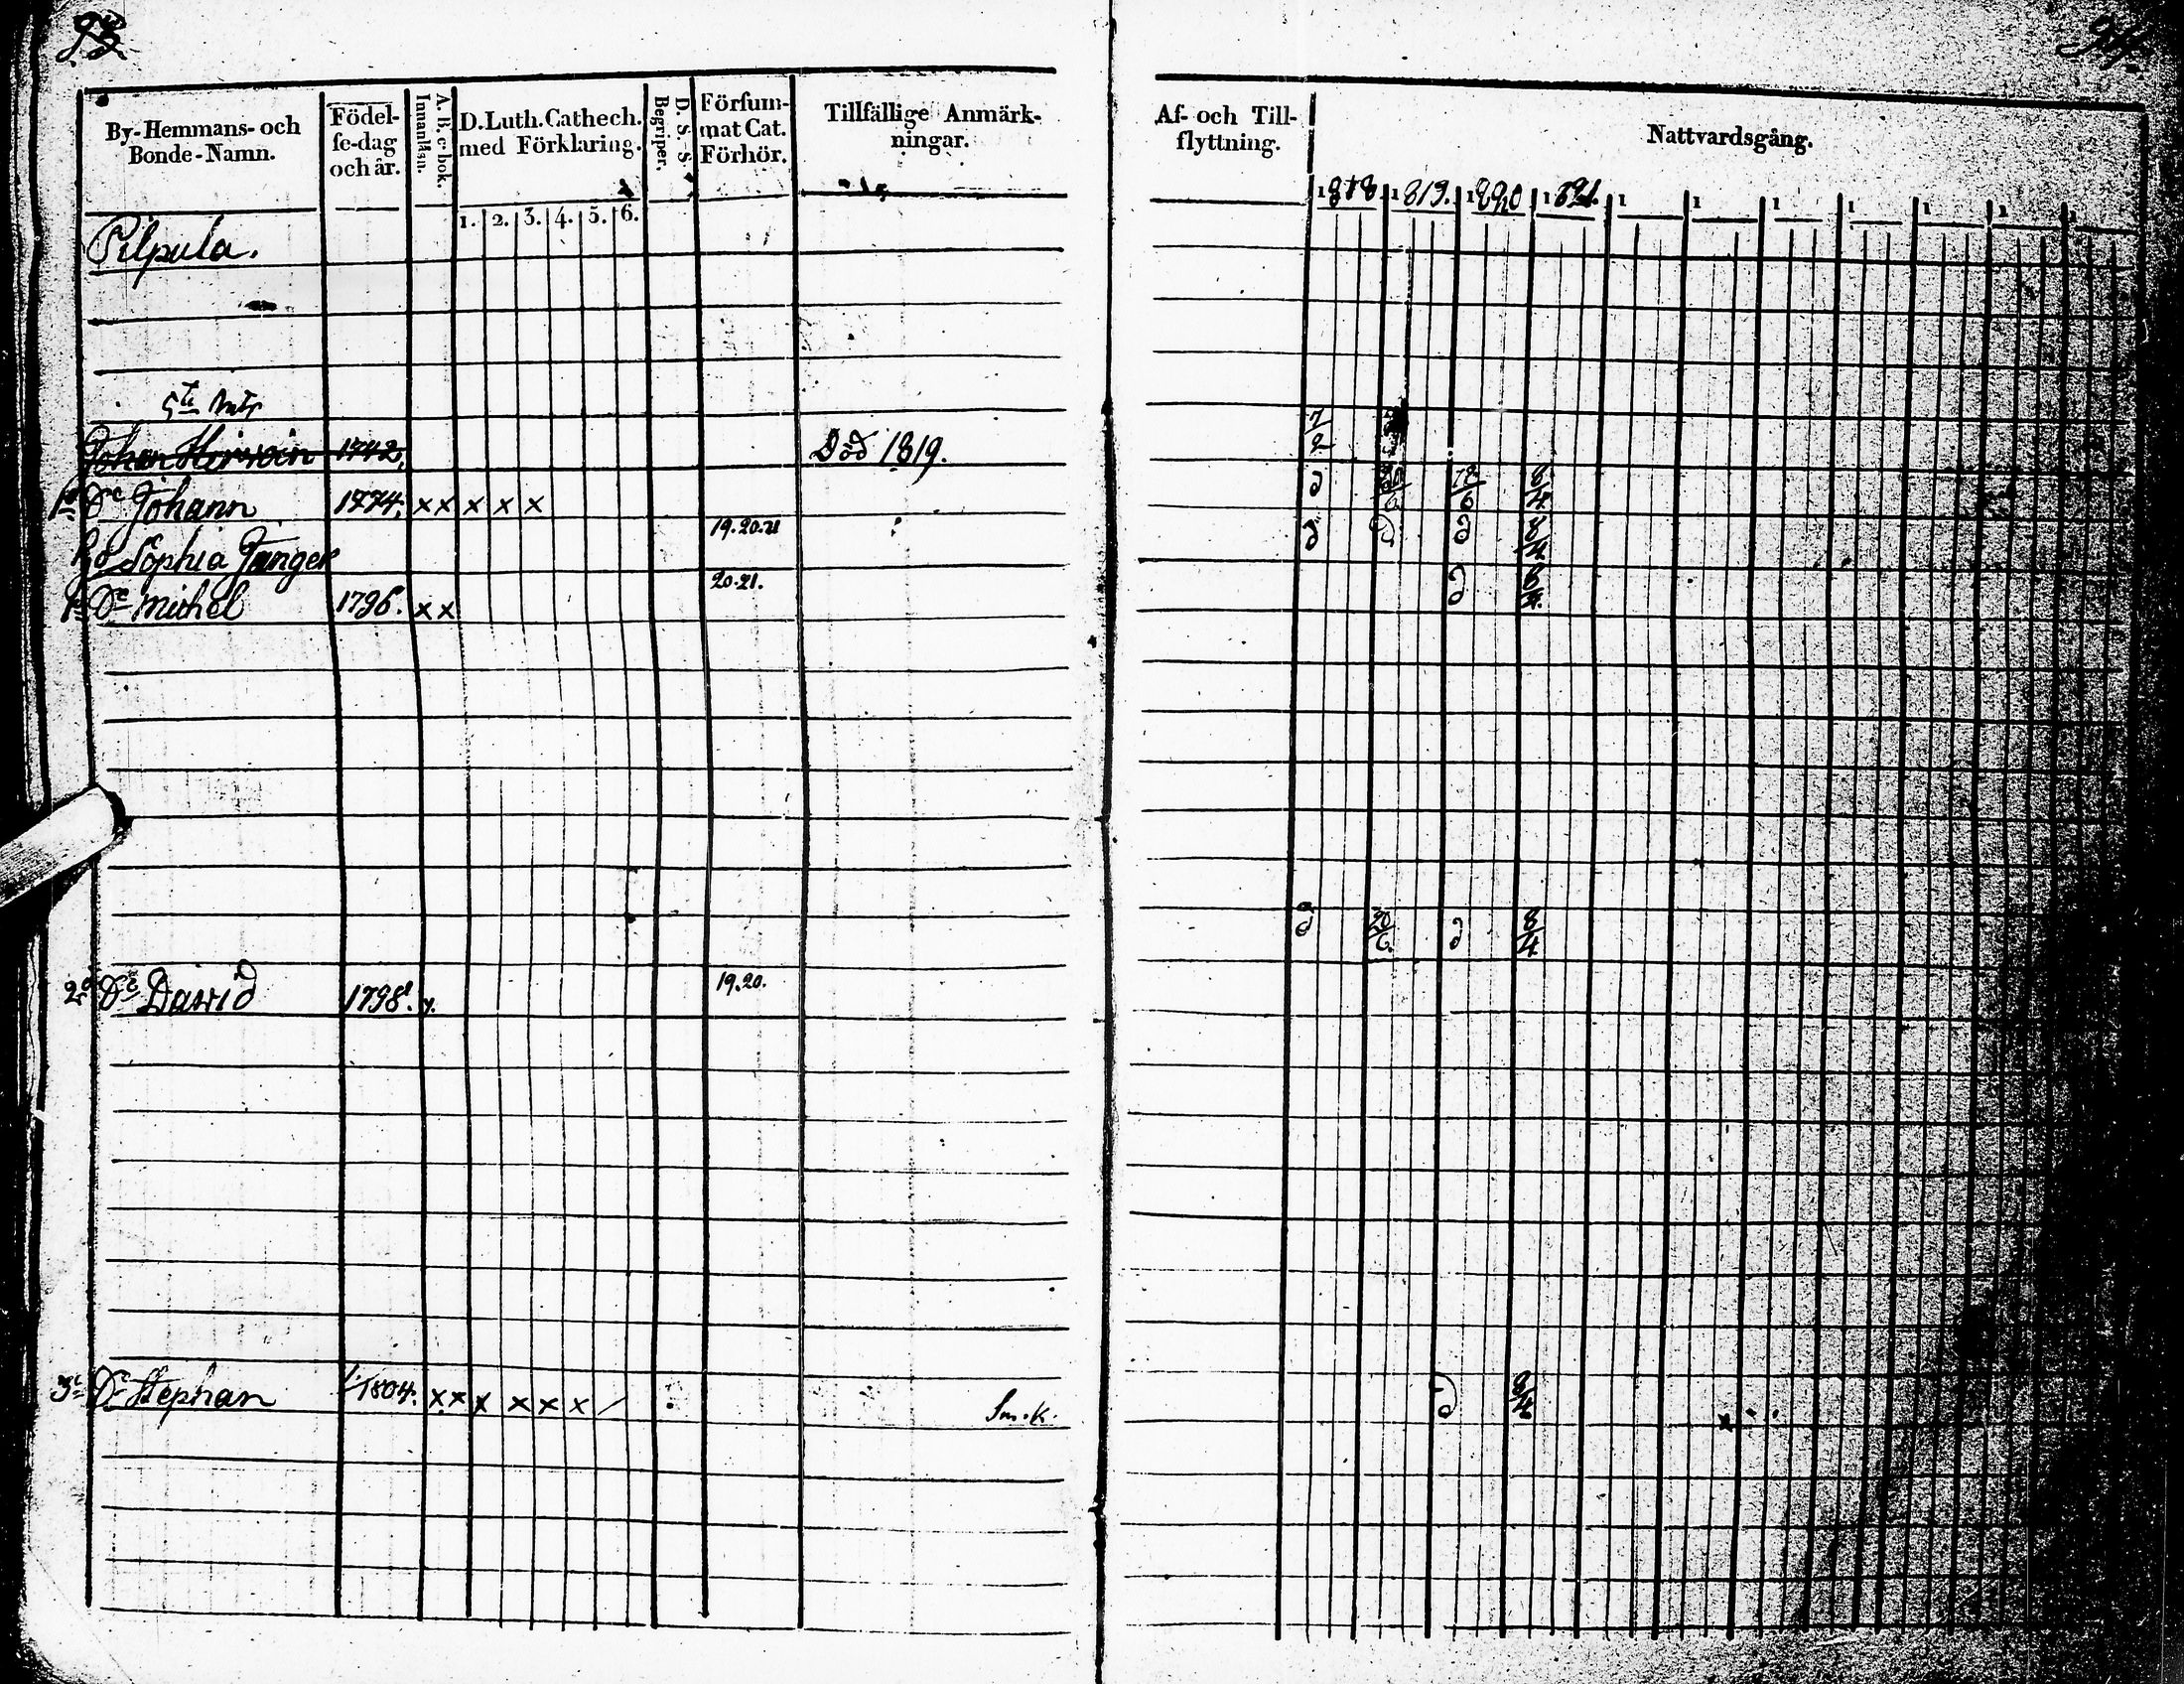 93.
94.
By-Hemmans- och Bonde-Namn.
Födelse-dag och år.
A. B. c-bok.
Innanläsn.
D. Luth. Cathech. med Förklaring.
1. 2. 3. 4. 5. 6.
D. S. S.
Begriper.
Försummat Cat. Förhör.
Tillfällige Anmärkningar.
Af- och Tillflyttning.
Nattvardsgång.
1818. 1819. 1820 1821. 1 1 1 1 1 1 1
Pilpula.
Johan Hirvoin 1742. Död 1819. 7/2
Dº Johann 1774. x x x x x 18/6 8/4
Sophia 19.20.21 8/4
Dº Michel 1796. x x 20.21. 8/4
2º Dº David 1798. 19.20. 20/6 8/4
3º Dº Stephan 1804. x x x x x x / Sm.K. 8/4